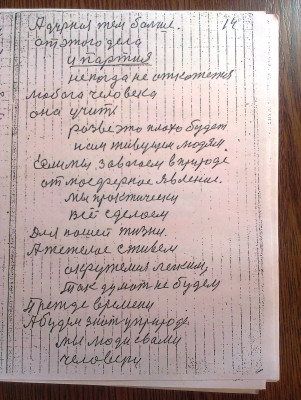 А дурная тем более. 14
от этого дела
и партия
никогда не откажется
любого человека
она учит
разве это плохо будет
нам живущем людям.
Если мы завагаем в природе
от мосферное явление.
мы практически
всё сделаем
Для нашей жизни.
А тежелое стихем
окружения легкий,
так думать не будем
Прежде времени
А будем знать у природе.
мы люди с вами
человеки